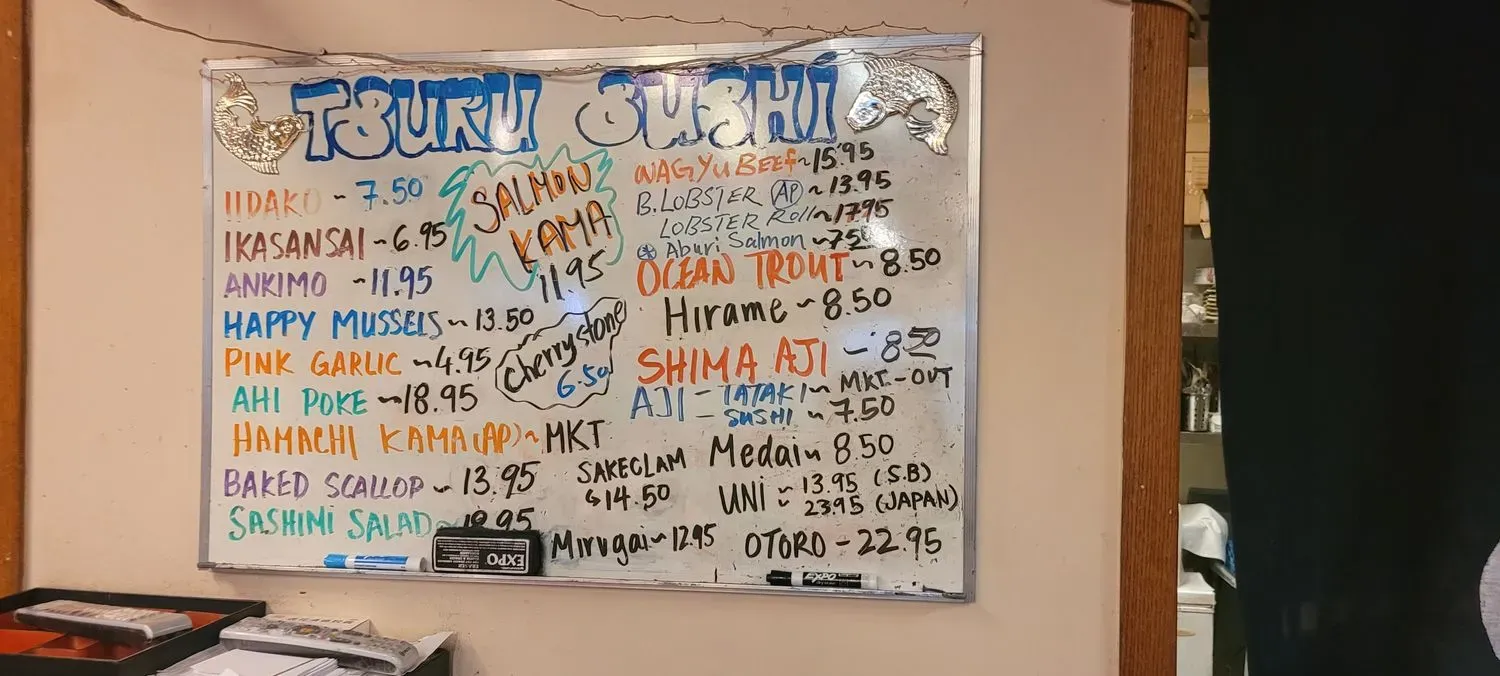 TSURU SUSHI
IIDAKO ~ 7.50
IKASANSAI ~ 6.95
ANKIMO ~ 11.95
HAPPY MUSSELS ~ 13.50
PINK GARLIC ~ 4.95
AHI POKE ~ 18.95
HAMACHI KAMA (AP) ~ MKT
BAKED SCALLOP ~ 13.95
SASHIMI SALAD ~
SALMON
KAMA
11.95
Cherrystone
6.50
SAKECLAM
↳ 14.50
Mirugai ~ 12.95
WAGYU BEEF ~ 15.95
B. LOBSTER (AP) ~ 13.95
LOBSTER Roll ~ 17.95
Aburi Salmon ~
OCEAN TROUT ~ 8.50
Hirame ~ 8.50
SHIMA AJI ~ 8.50
AJI - TATAKI ~ MKT - OUT
- SUSHI ~ 7.50
Medai ~ 8.50
UNI ~ 13.95 (S.B)
~ 23.95 (JAPAN)
OTORO - 22.95
EXPO
ERASER
EXPO